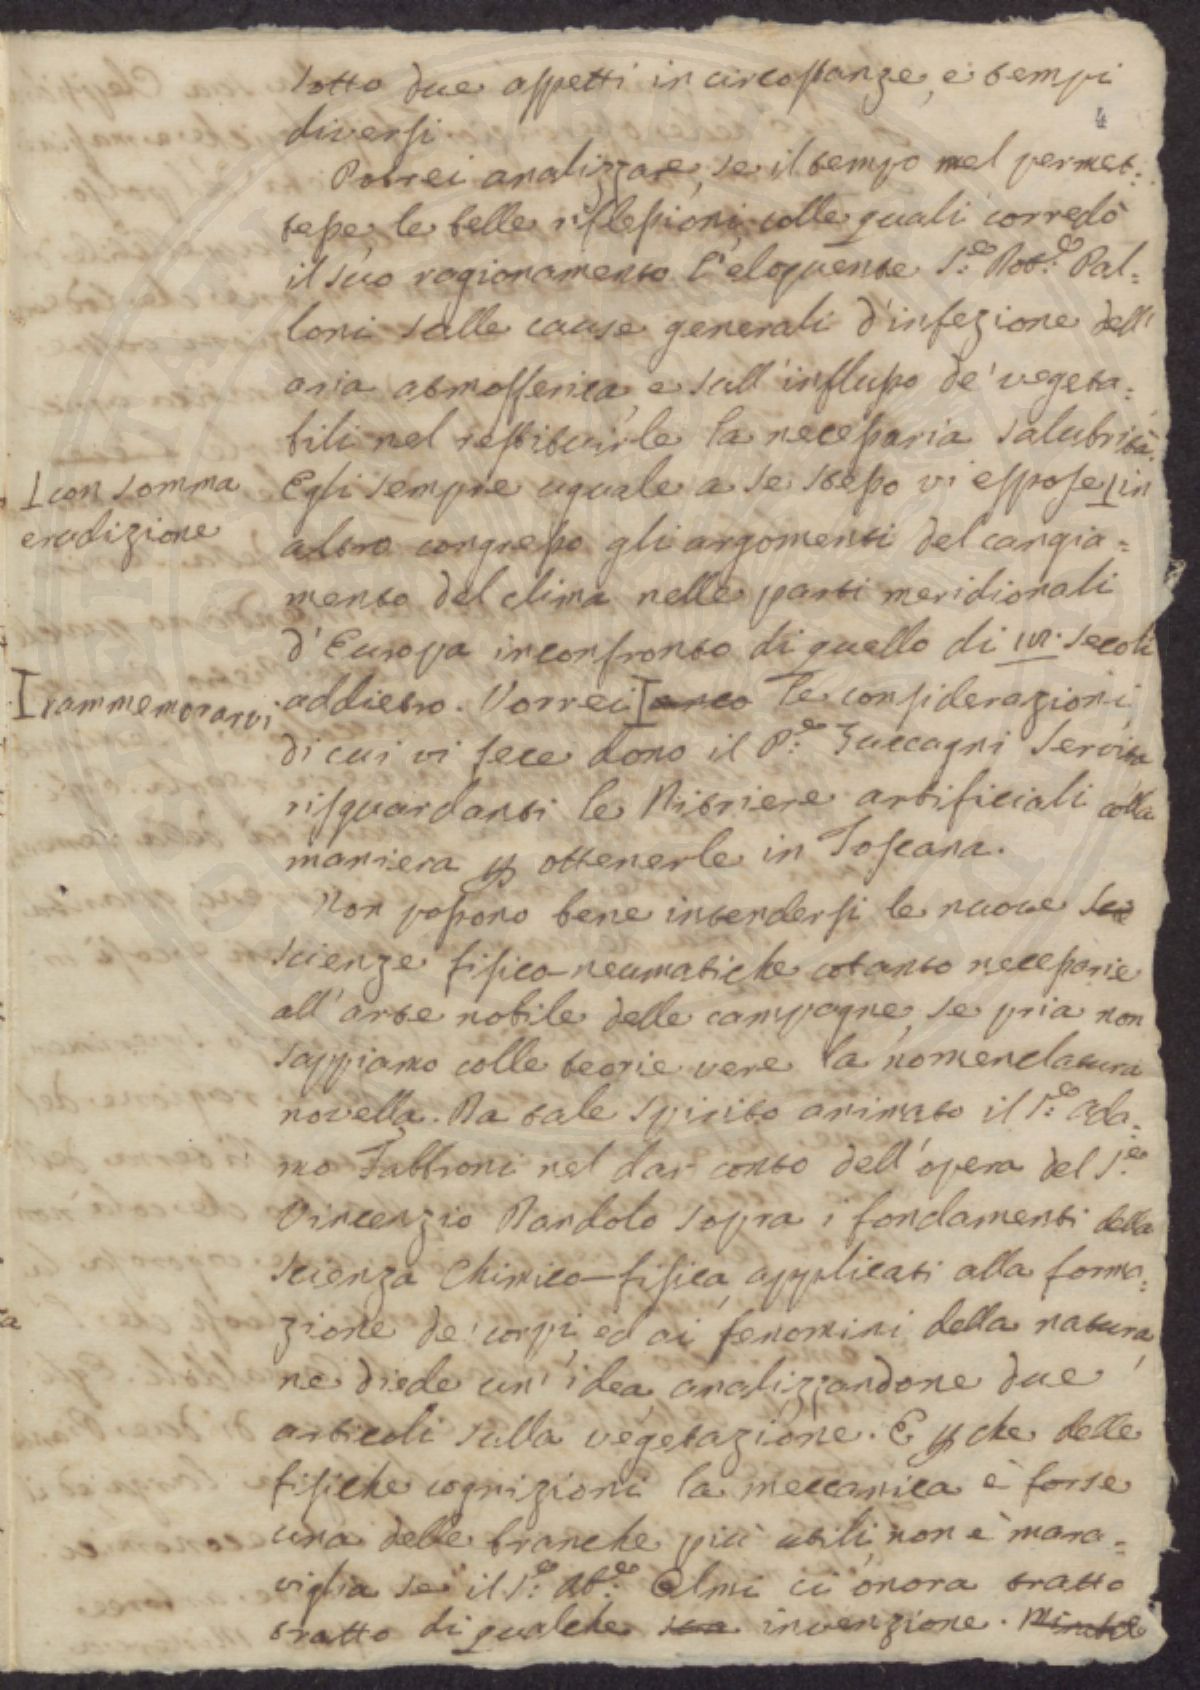 sotto due aspetti in circostanze, e tempi
4
diversi
Potrei analizzare, se il tempo mel permet=
tesse, le belle riflessioni, colle quali corredò
il suo ragionamento l'eloquente S.e Dot.e Pal=
loni sulle cause generali d'infezione dell'
aria atmosferica, e sull'influsso de' vegeta=
bili nel restituirle la necessaria salubrità.
Egli sempre uguale a se stesso vi espose, in
con somma
erudizione
altro congresso gli argomenti del cangia=
mento del clima nelle parti meridionali
d'Europa in confronto di quello di secoli
addietro. Vorrei anco le considerazioni,
rammemorarvi
di cui vi fece dono il P.e Zuccagni Servita
risguardanti le Nitriere artificiali colla
maniera p ottenerle in Toscana.
Non possono bene intendersi le nuove sce
scienze fisico-neumatiche cotanto necessarie
all'arte nobile delle campagne, se pria non
sappiamo colle teorie vere la nomenclatura
novella. Da tale spirito animato il S.e Ada=
mo Fabbroni nel dar conto dell'opera del S.e
Vincenzio Dandolo sopra i fondamenti della
scienza Chimico-fisica, applicati alla forma=
zione de' corpi, ed ai fenomini della natura,
ne diede un'idea, analizzandone due
articoli sulla vegetazione. E p che delle
fisiche cognizioni la meccanica è forse
una delle branche più utili, non è mara=
viglia se il S.e Ab.e Elmi ci onora tratto
tratto di qualche sua invenzione.